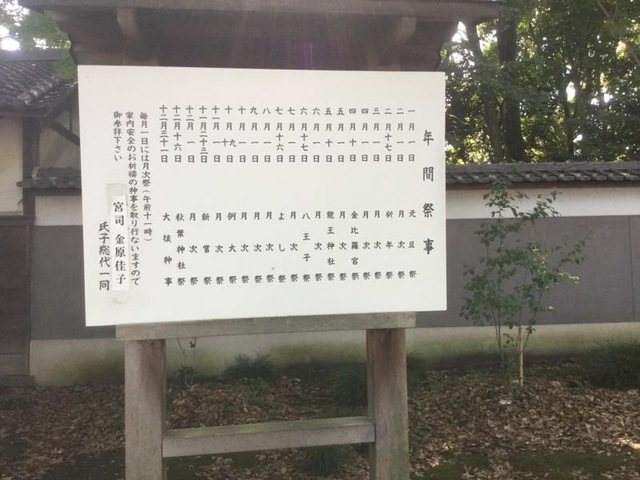 年間祭事
一月一日 元旦祭
二月一日 月次祭
二月十七日 祈年祭
三月一日 月次祭
四月一日 月次祭
四月十日 金比羅宮祭
五月一日 月次祭
五月十日 龍王神社祭
六月一日 月次祭
六月十七日 八王子祭
七月一日 月次祭
七月十六日 よし祭
八月一日 月次祭
九月一日 月次祭
十月一日 月次祭
十月十九日 例大祭
十一月一日 月次祭
十一月二十三日 新嘗祭
十二月一日 月次祭
十二月十六日 秋葉神社祭
十二月三十一日 大祓神事
毎月一日には月次祭(午前十一時)
家内安全のお祈祷の神事を取り行ないますので
御参拝下さい
宮司 金原佳子
氏子総代一同